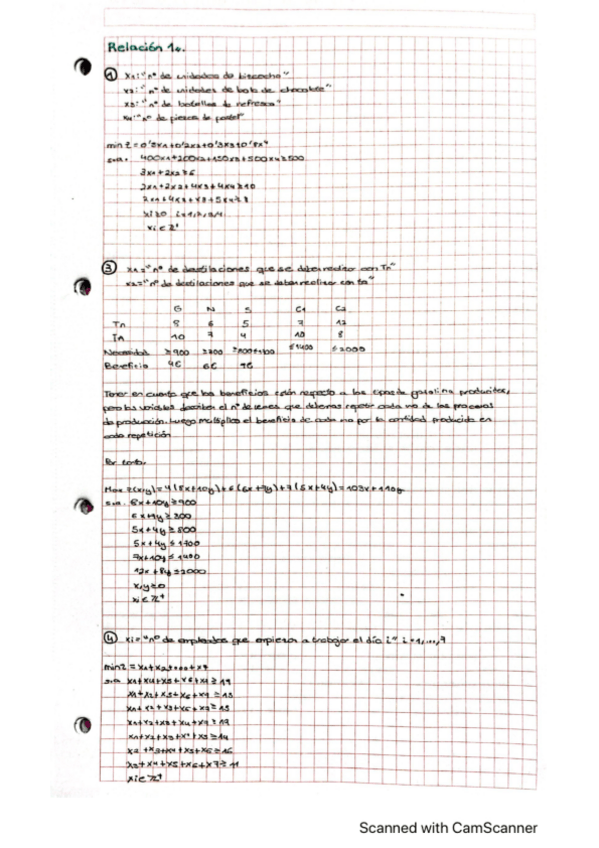 Relación 1.
① x1: "nº de unidades de bizcocho"
x2: "nº de unidades de bola de chocolate"
x3: "nº de botellas de refresco"
x4: "nº de piezas de pastel"
min z = 0'5x1+0'2x2+0'3x3+0'8x4
s.a. 400x1+200x2+150x3+500x4≥500
3x1+2x2≥6
2x1+2x2+4x3+4x4≥10
2x1+4x2+x3+5x4≥8
xi≥0 i=1,2,3,4
xi ∈ Z+
③ x1="nº de destilaciones que se deben realizar con Tn"
x2="nº de destilaciones que se deben realizar con Ta"
G N S C1 C2
Tn 8 6 5 7 12
Ta 10 7 4 10 8
Necesidad ≥900 ≤1400 ≤2000
Beneficio 4€ 6€
Tener en cuenta que los beneficios están respecto a los tipos de gasolina producidos,
pero las variables describen el nº de veces que debemos repetir cada uno de los procesos
de producción. Luego multiplico el beneficio de cada uno por la cantidad producida en
cada repetición.
Por tanto,
Max z(x,y)=4(8x+10y)+6(6x+7y)+7(5x+4y)=103x+110y
s.a. 8x+10y≥900
5x+4y≥800
5x+4y≤1700
7x+10y≤1400
12x+8y≤2000
x,y≥0
xi ∈ Z+
④ xi="nº de empleados que empiezan a trabajar el día i" i=1,...,7
min z = x1+x2+...+x7
s.a. x1+x4+x5+x6+x7≥19
x1+x2+x5+x6+x7≥13
x1+x2+x3+x6+x7≥15
x1+x2+x3+x4+x7≥19
x1+x2+x3+x4+x5≥14
x2+x3+x4+x5+x6≥16
x3+x4+x5+x6+x7≥11
xi ∈ Z+
Scanned with CamScanner